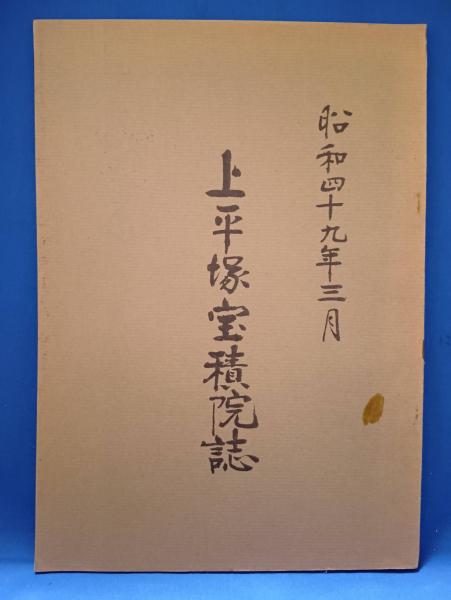 昭和四十九年三月
上平塚宝積院誌